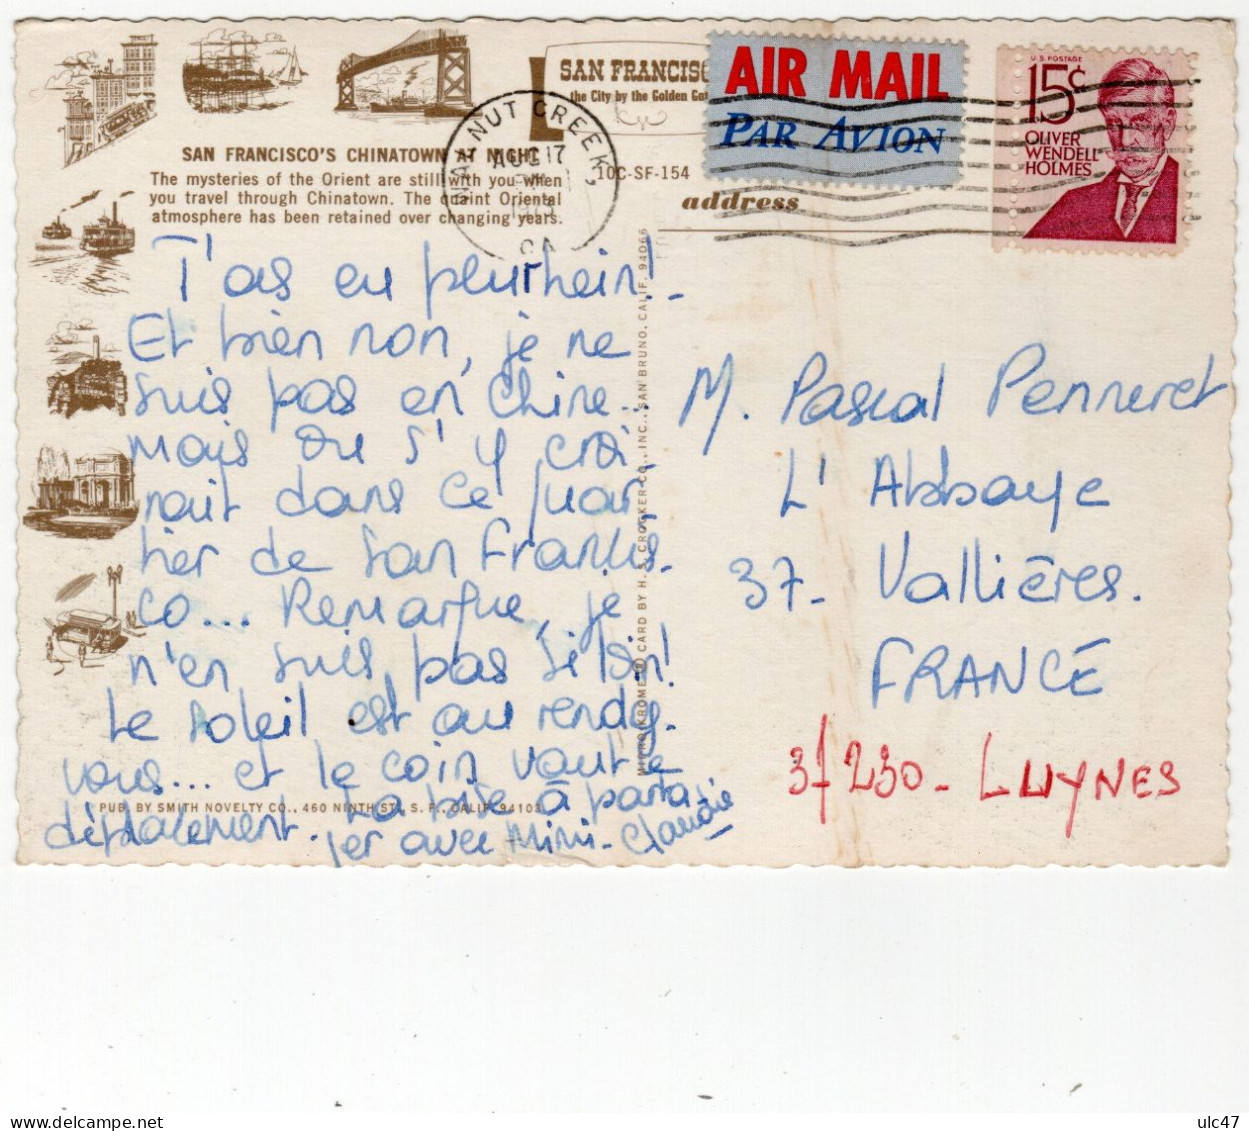 SAN FRANCISC
the City by the Golden Gat
AIR MAIL
PAR AVION
U.S. POSTAGE
15¢
OLIVER
WENDELL
HOLMES
WALNUT CREEK,
AUG 17
CA
SAN FRANCISCO'S CHINATOWN AT NIGHT
The mysteries of the Orient are still with you when
you travel through Chinatown. The quaint Oriental
atmosphere has been retained over changing years.
10C-SF-154
address
T'as eu peur hein!..
Et bien non, je ne
suis pas en Chine...
mais on s'y croi-
rait dans ce quar-
tier de San Francis-
co... Remarque, je
n'en suis pas si loin!
Le soleil est au rendez-
vous... et le coin vaut le
déplacement. La bise à parta-
ger avec Mimi- Claudie
MIRRO-KROME® CARD BY H. S. CROCKER CO., INC., SAN BRUNO, CALIF. 94066
PUB. BY SMITH NOVELTY CO., 460 NINTH ST., S. F., CALIF. 94103
M. Pascal Penneret
L'Abbaye
37- Vallières.
FRANCE
37230- LUYNES
ulc47